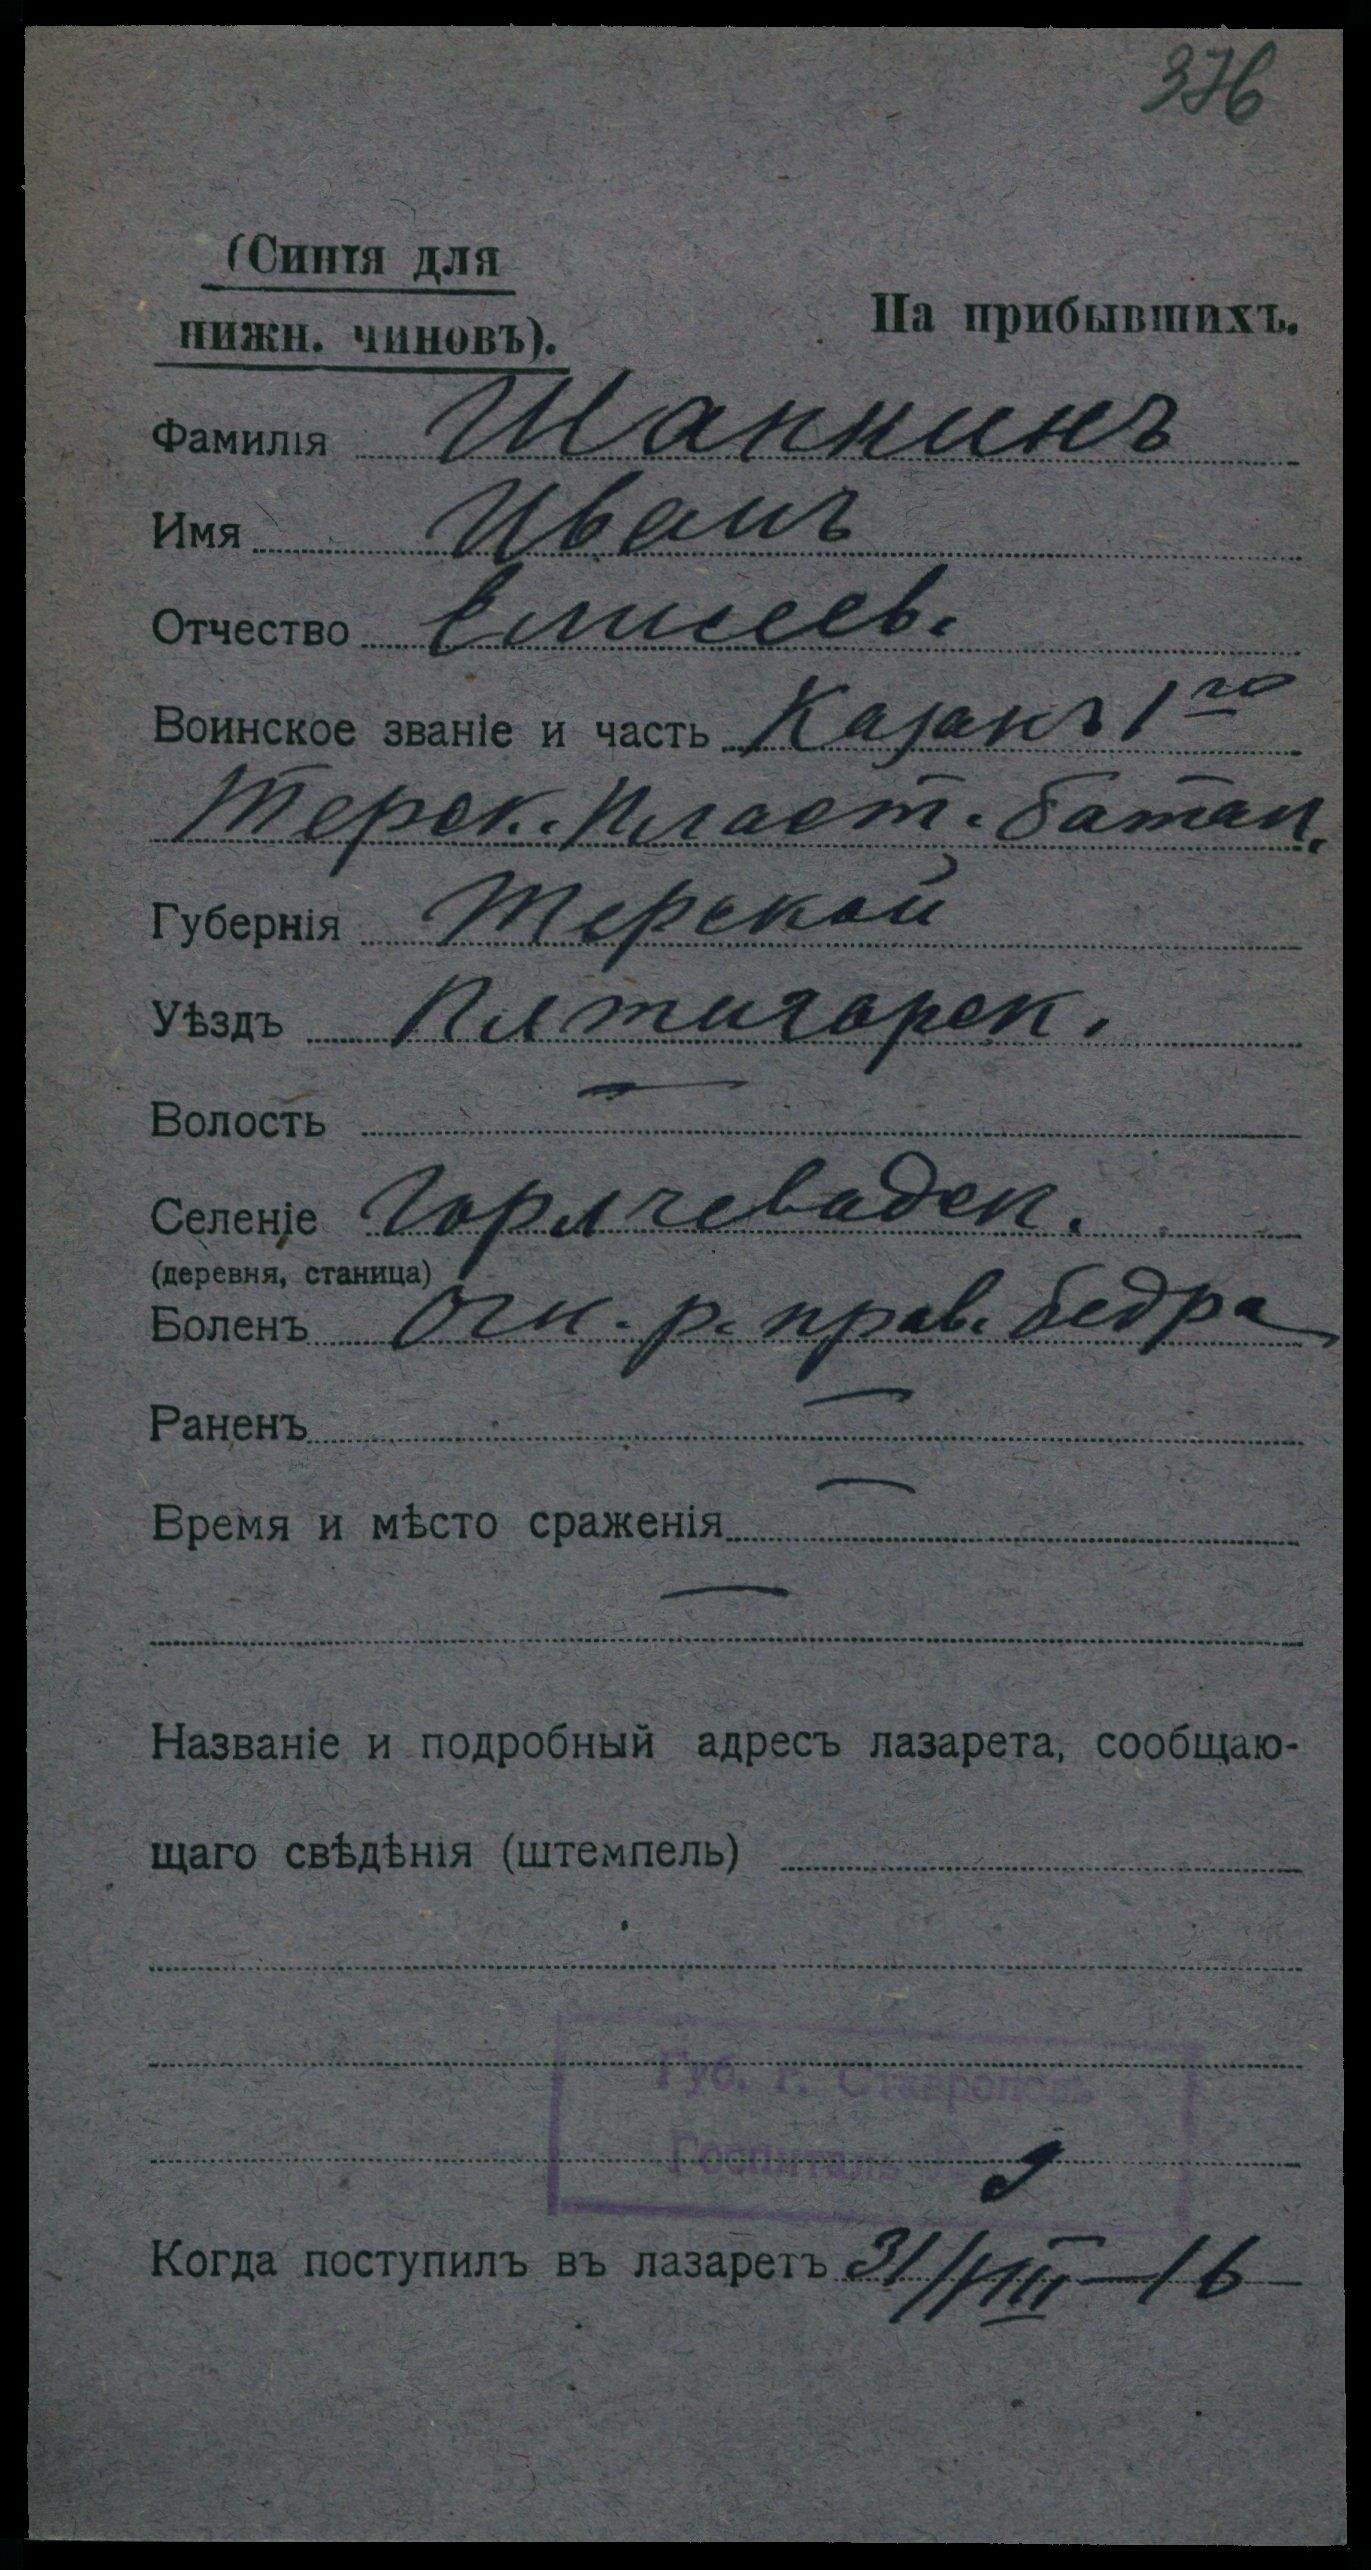 376
(Синія для
нижн. чиновъ).
На прибывшихъ.
Фамилія Шапкинъ
Имя Иванъ
Отчество Елисеев.
Воинское званіе и часть Казакъ 1го
Терск. Пласт. батал.
Губернія Терской
Уѣздъ Пятигорск.
Волость —
Селеніе Горячеводск.
(деревня, станица)
Боленъ Огн. р. прав. бедра
Раненъ —
Время и мѣсто сраженія —
—
Названіе и подробный адресъ лазарета, сообщаю-
щаго свѣдѣнія (штемпель)
Губ. г. Ставрополь
Госпиталь № 9
Когда поступилъ въ лазаретъ 31/VIII—16